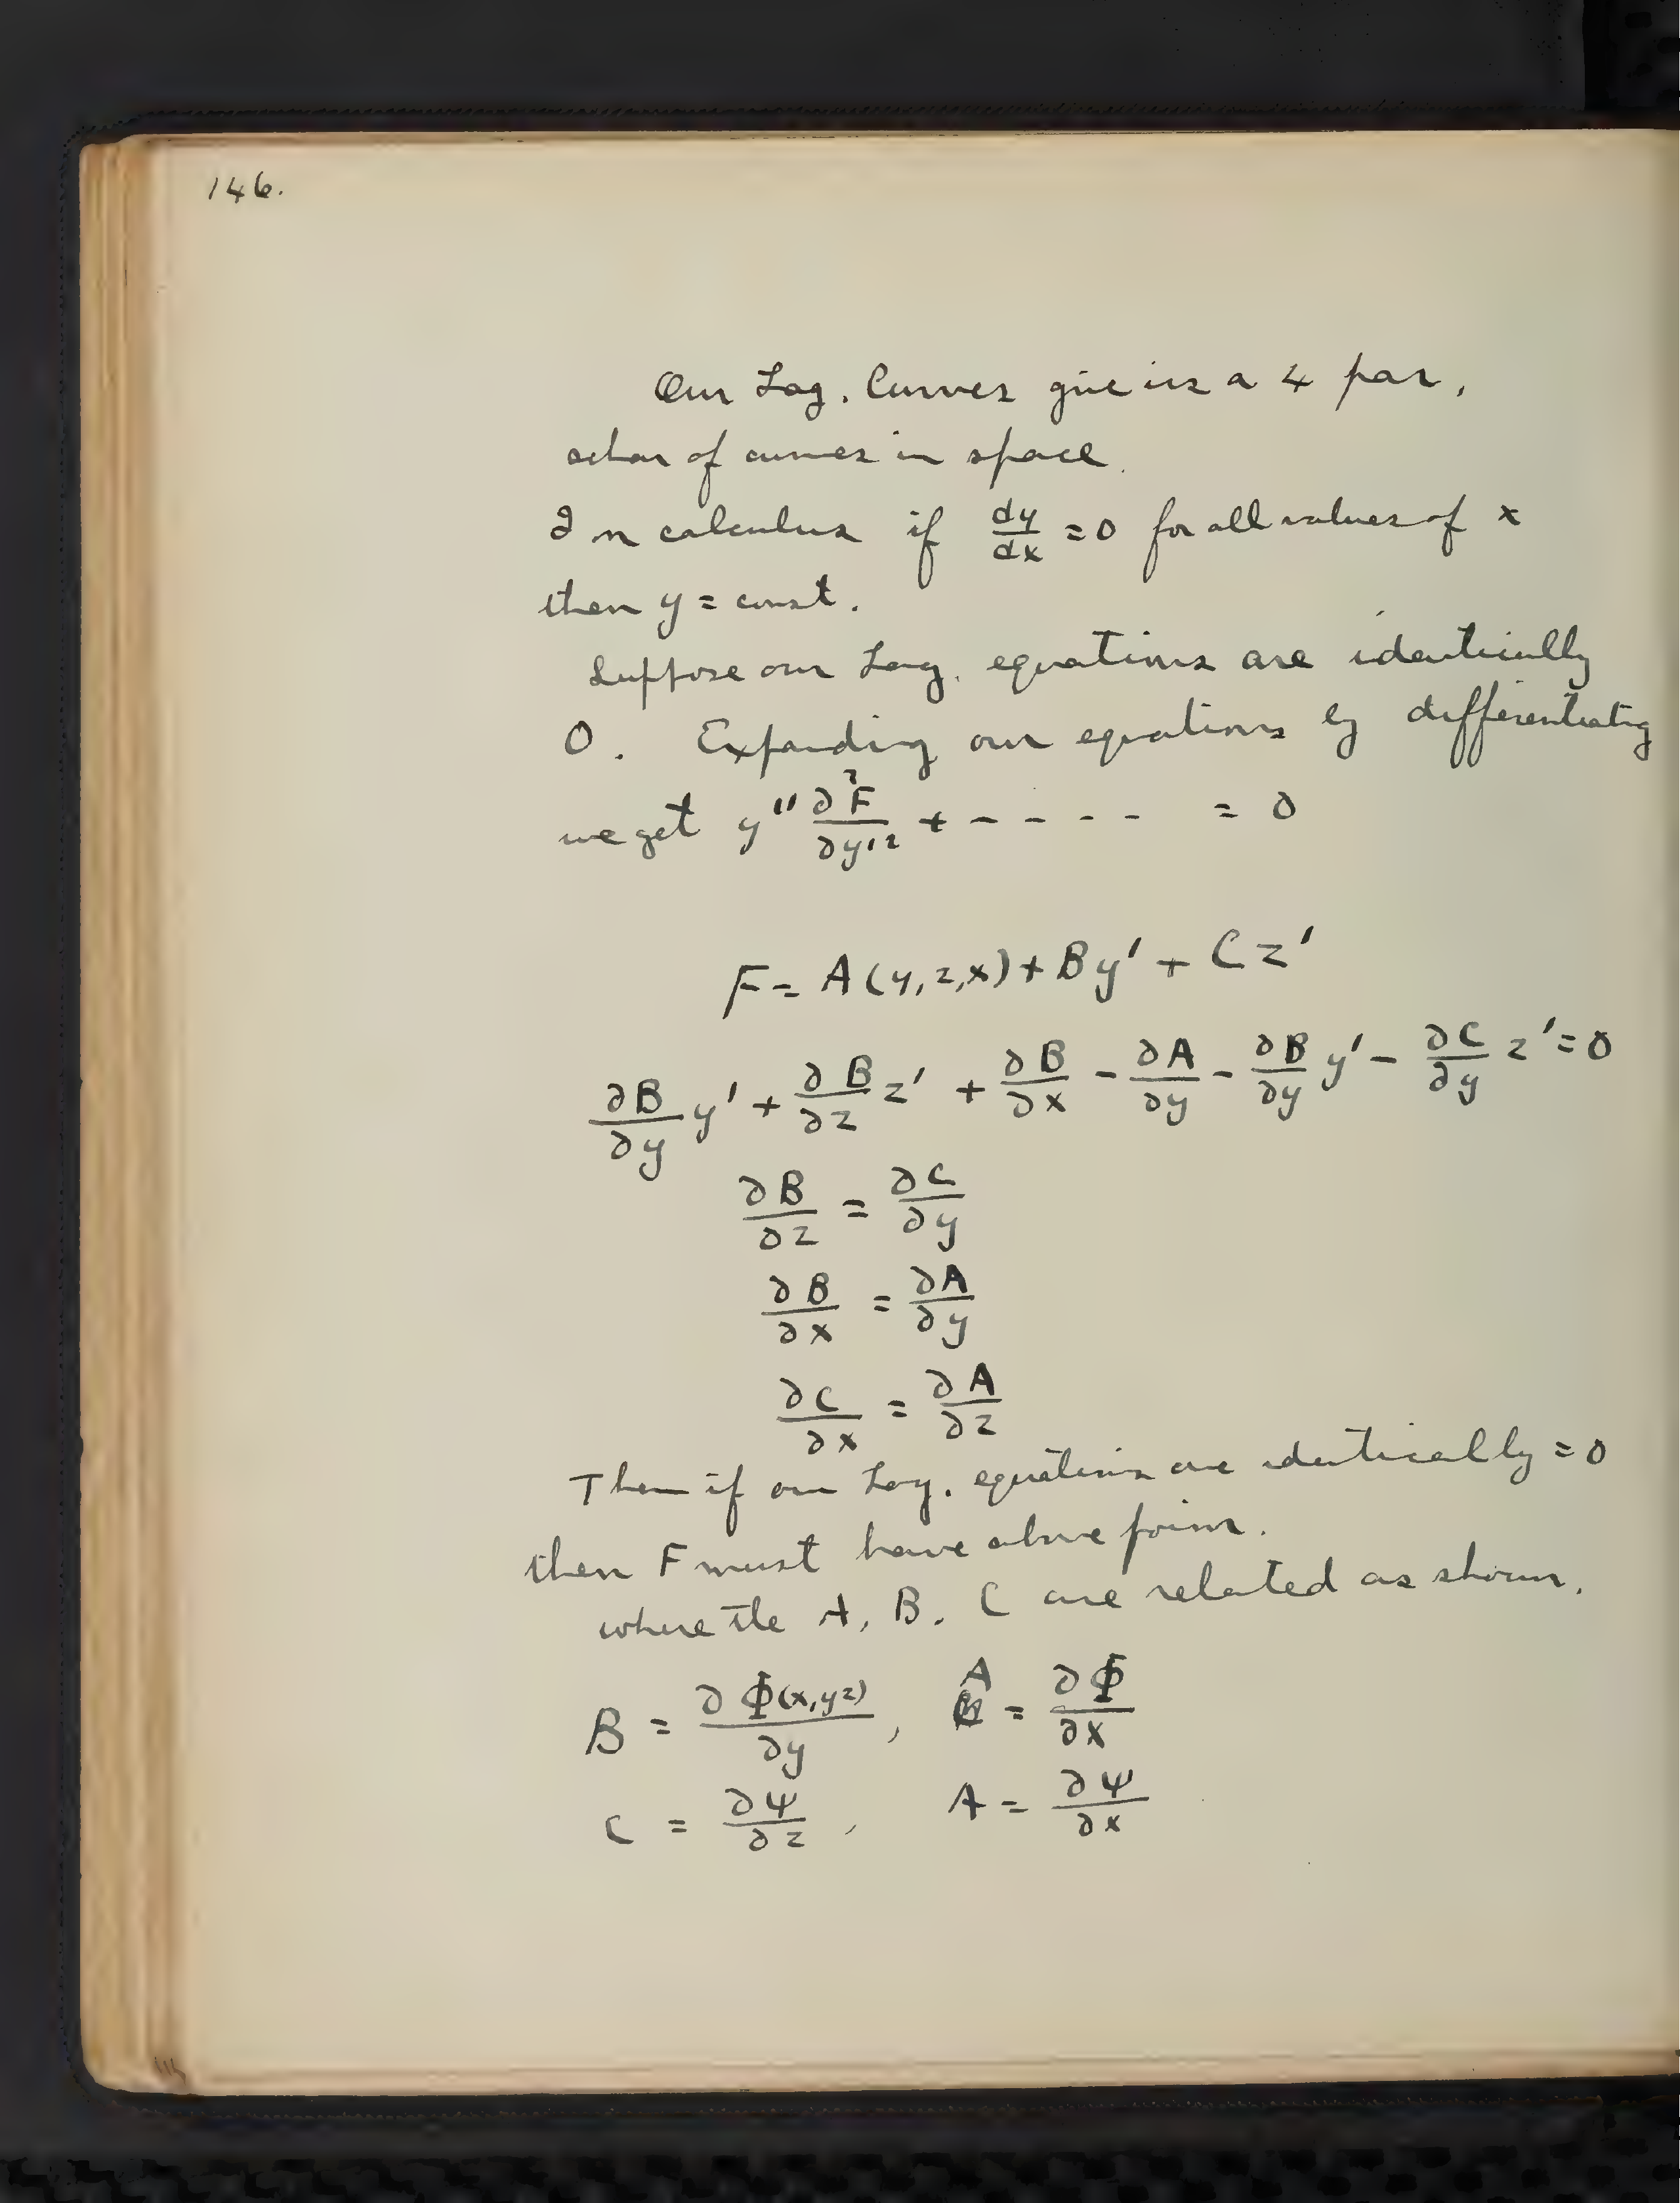 146.
Our Lag. Curves give us a 4 par.
schar of curves in space.
In calculus if dy/dx = 0 for all values of x
then y = const.
Suppose our Lag. equations are identically
0. Expanding our equations by differentiating
we get y'' ∂²F/∂y'² + - - - - = 0
F = A(y,z,x) + By' + Cz'
∂B/∂y y' + ∂B/∂z z' + ∂B/∂x - ∂A/∂y - ∂B/∂y y' - ∂C/∂y z' = 0
∂B/∂z = ∂C/∂y
∂B/∂x = ∂A/∂y
∂C/∂x = ∂A/∂z
Then if our Lag. equations are identically = 0
then F must have above form.
where the A, B, C are related as shown.
B = ∂Φ(x,yz)/∂y , A = ∂Φ/∂x
C = ∂Ψ/∂z , A = ∂Ψ/∂x